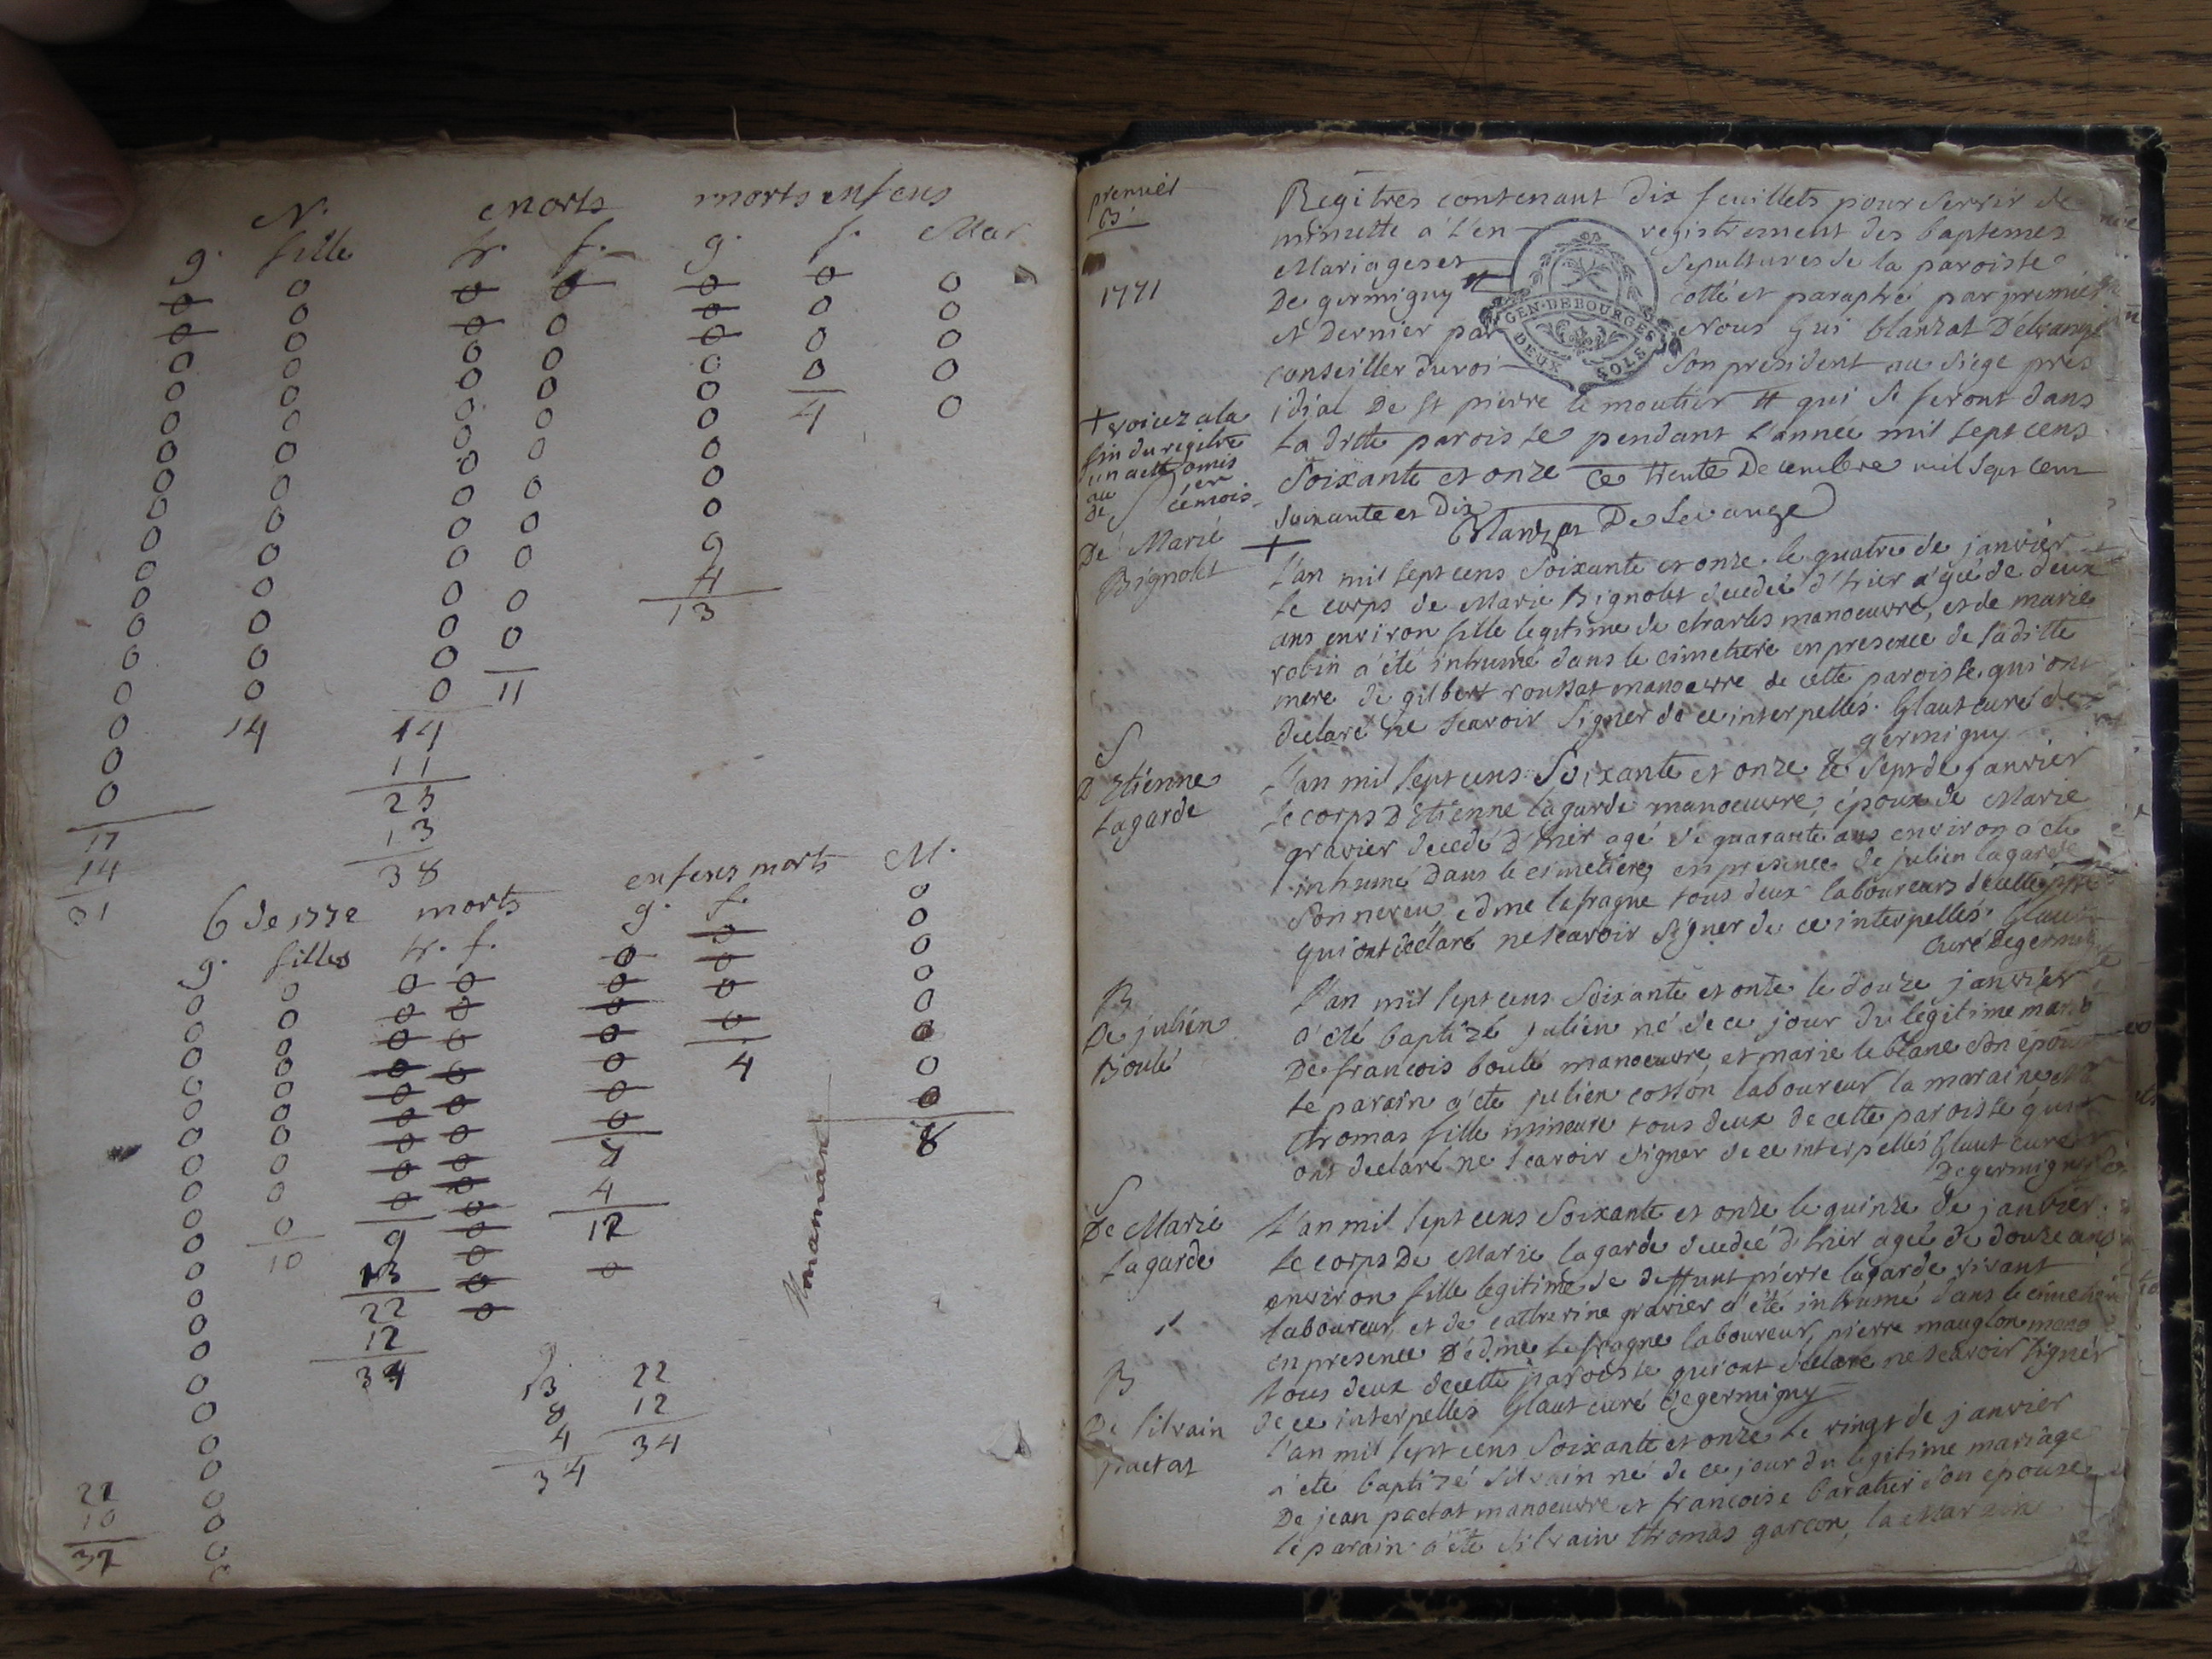 N. morts morts enfens
g. fille h. f. g. f. Mar
0 0 0 0 0 0 0
0 0 0 0 0 0 0
0 0 0 0 0 0 0
0 0 0 0 0 0 0
0 0 0 0 0 4 0
0 0 0 0 0
0 0 0 0 0
0 0 0 0 0
0 0 0 0 9
0 0 0 0 4
0 0 0 0 13
0 0 0 11
0 0 0
0 14 14
0 11
0 25
0 13
17 38
14
31
b de 1772 morts enfens morts M.
g. filles h. f. g. f.
0 0 0 0 0 0 0
0 0 0 0 0 0 0
0 0 0 0 0 0 0
0 0 0 0 0 0 0
0 0 0 0 0 4 0
0 0 0 0 0 0
0 0 0 0 0 0
0 0 0 0 8 0
0 0 0 0 4 8
0 0 9 0 12
0 10 13 0 0
0 22 0
0 12 0
0 34
0 9 22
0 13 12
0 8 34
0 4
0 34
22
10
32
maniant
premiér
B
1771
Regitres contenant dix feuillets pour servir de
minutte a l'en registrement des baptemes
Mariages et sepultures de la paroisse
De germigny # cotté et paraphé par premiér
et Dernier par Nous gui blanzat Delevange
conseiller du roi son president au siége prés
idial De st pierre le moutier # qui se feront dans
La ditte paroisse pendant l'année mil sept cens
soixante et onze ce trente Decembre mil sept cens
soixante et Dix
Blanzat De Levange
GEN. DE BOURGES
DEUX SOLS
+ voiez a la
fin du regitre
un acte omis
au 1er
de ce mois
De Marie
Bignolet
+
L'an mil sept cens soixante et onze le quatre de janviér
le corps de Marie Bignolet decedée d'hier agée de deux
ans environ fille legitime de charles manoeuvre, et de marie
robin a été inhumé dans le cimetiere en presence de sa ditte
mere de gilbert roussat manoeuvre de cette paroisse qui ont
declaré ne scavoir signer de ce interpellés. Glaut curé de
germigny
S
D'Etienne
Lagarde
L'an mil sept cens soixante et onze le sept de janvier
le corps D'Etienne lagarde manoeuvre, époux de Marie
gravier decedé D'hier agé de quarante ans environ a été
inhumé dans le cimetiere, en presence de julien lagarde
son neveu, edme lafragne tous deux laboureurs de cette psse
qui ont declaré ne scavoir signer de ce interpellés. Glaut
curé de germigny
B
De julien
Boulé
L'an mil sept cens soixante et onze le douze janvier
a été baptizé julien né de ce jour du legitime mar
De francois boulé manoeuvre, et marie leblanc son épouse
le parain a été julien cosson laboureur la maraine
thomas fille mineure tous deux de cette paroisse qui
ont declaré ne scavoir signer de ce interpellés Glaut curé
De germigny
S
De Marie
Lagarde
L'an mil sept cens soixante et onze le quinze de janvier
le corps De Marie lagarde decedée d'hier agée de douze ans
environ fille legitime de deffunt pierre lagarde vivant
laboureur, et de catherine gravier a été inhumé dans le cimetiere
en presence D'édme lafragne laboureur, pierre mauglon mano
tous deux de cette paroisse qui ont declaré ne scavoir signér
de ce interpellés Glaut curé de germigny
B
De silvain
pactat
L'an mil sept cens soixante et onze le vingt de janvier
a été baptizé silvain né de ce jour du legitime mariage
De jean pactat manoeuvre et francoise baratier son épouse
le parain a été silvain thomas garcon, la Marain